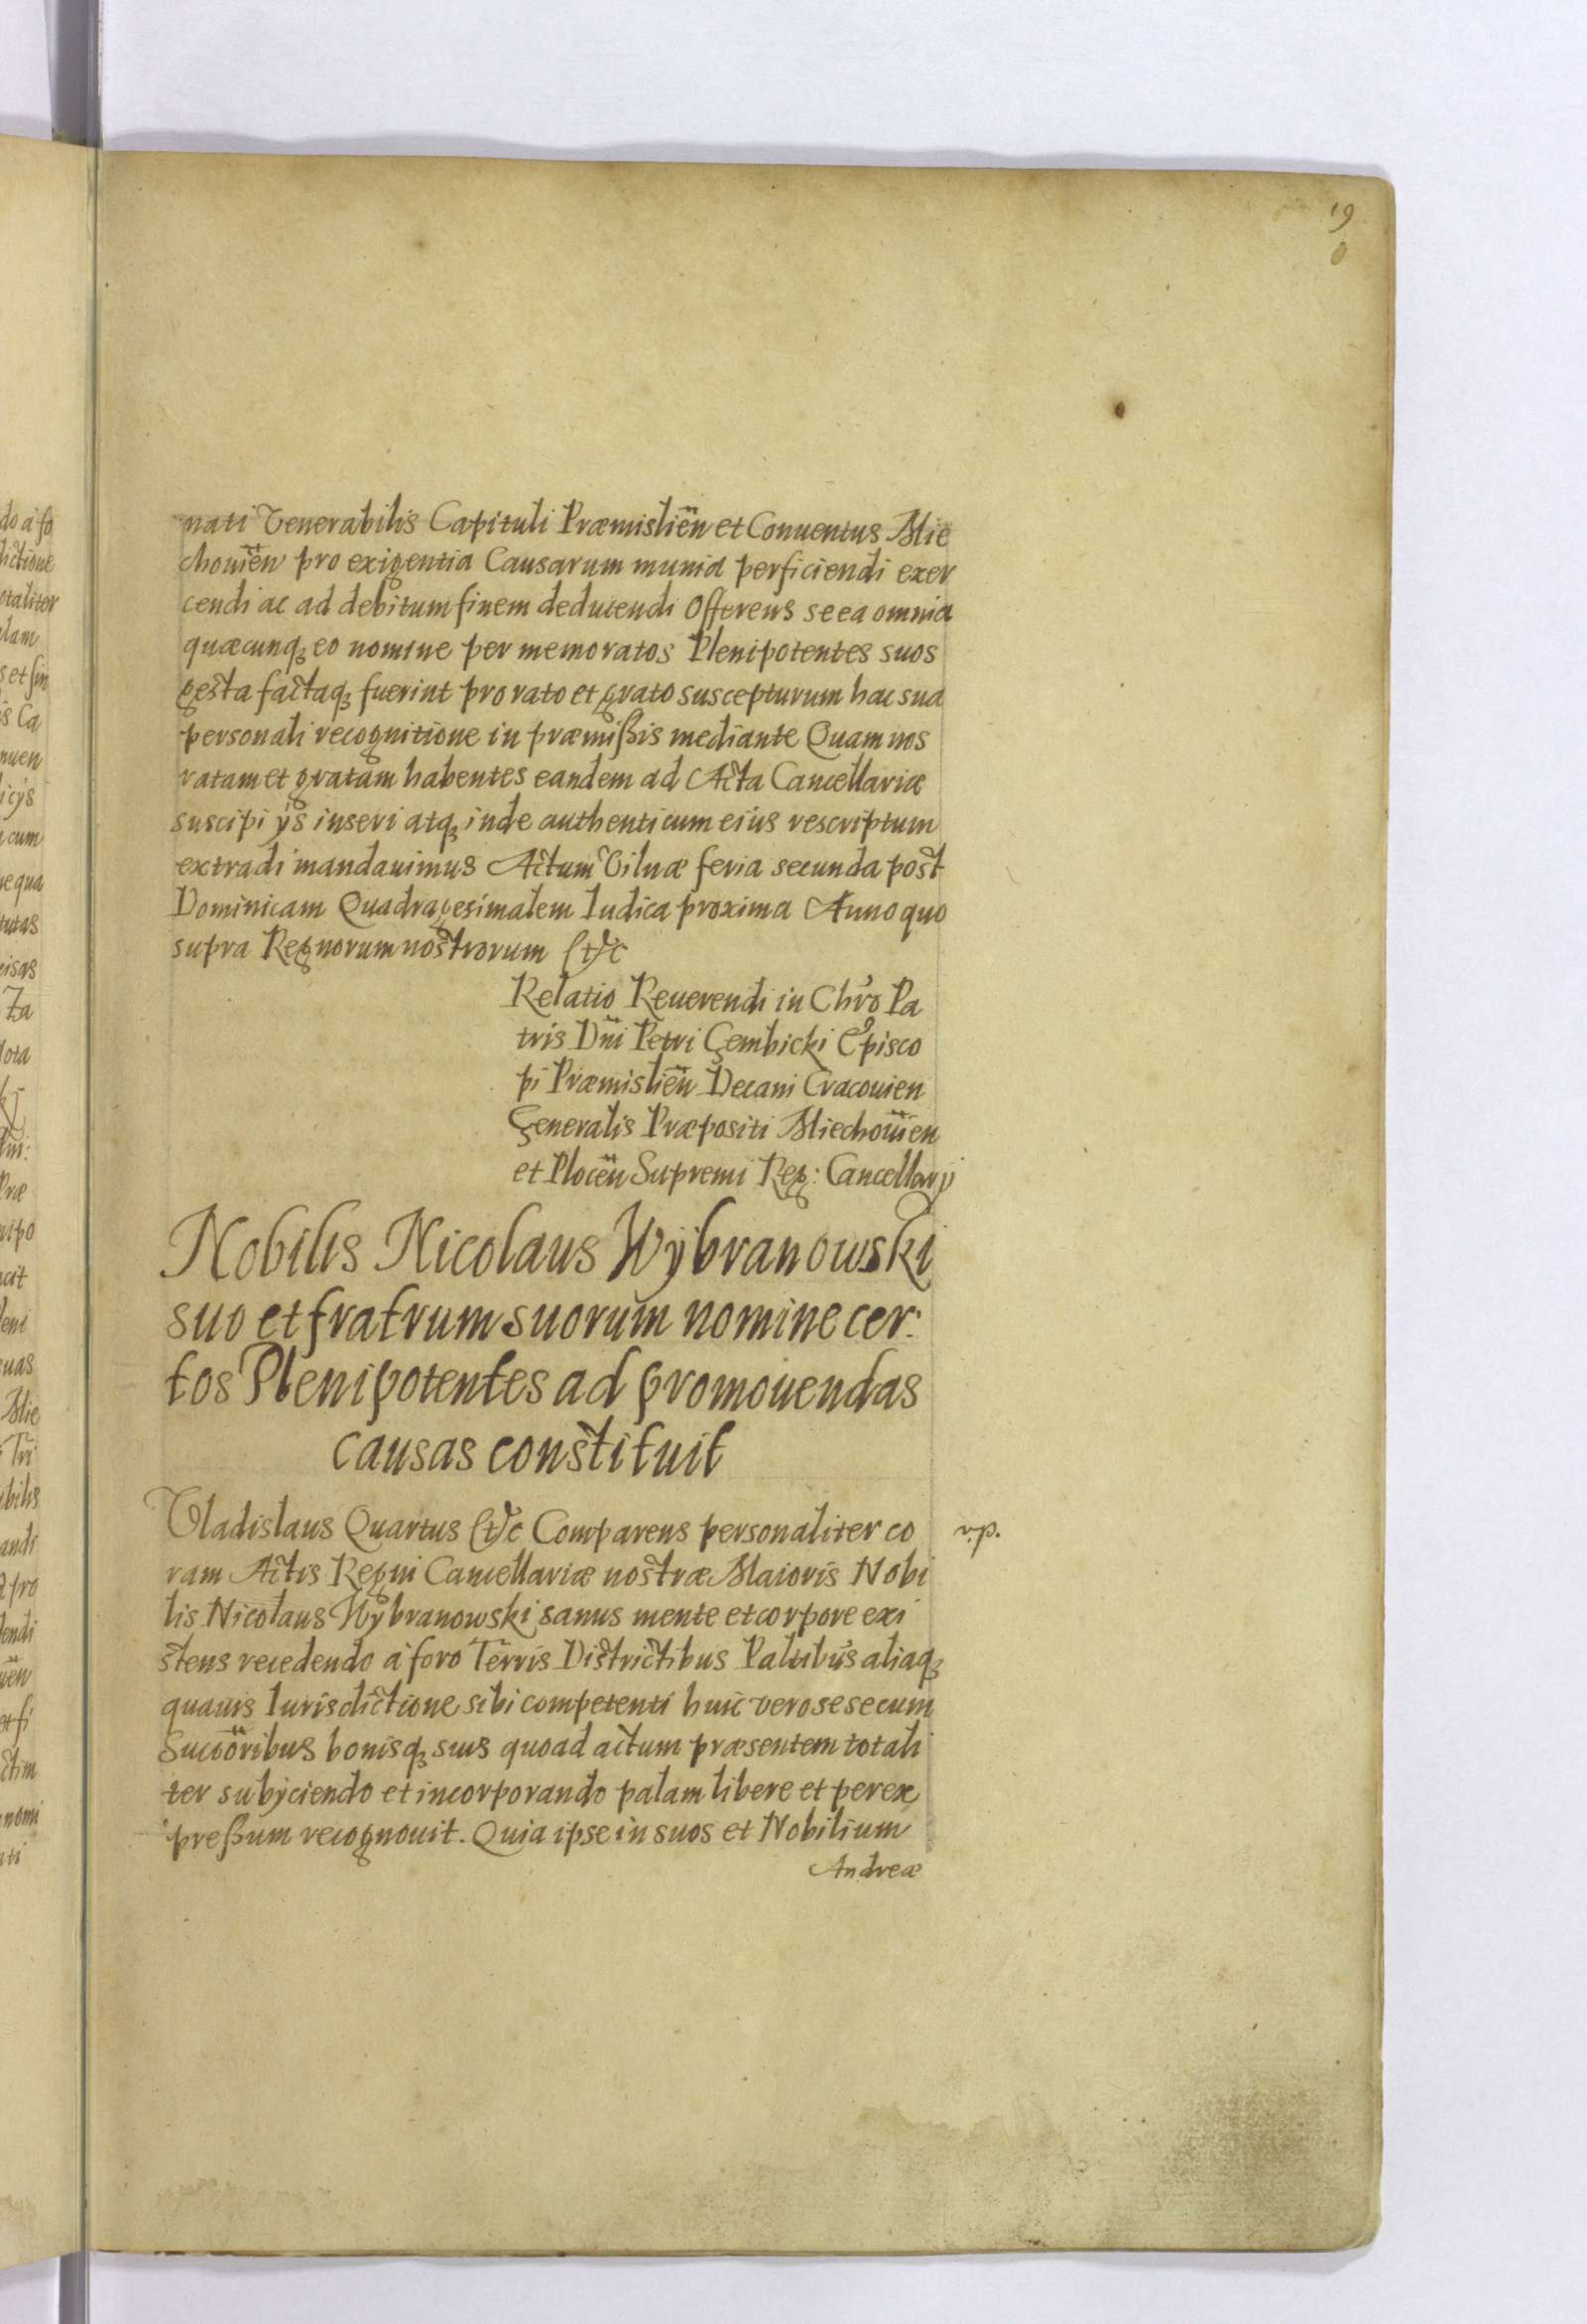 19
nati Venerabilis Capituli Præmislien̈ et Conuentus Mie
chouien̈ pro exigentia Causarum munia perficiendi exer
cendi ac ad debitum finem deducendi Offerens se ea omnia
quæcunqꝫ eo nomine per memoratos Plenipotentes suos
gesta factaqꝫ fuerint pro rato et grato suscepturum hac sua
personali recognitione in præmißis mediante Quam nos
ratam et gratam habentes eandem ad Acta Cancellariæ
suscipi ÿs inseri atqꝫ inde authenticum eius rescriptum
extradi mandauimus Actum Vilnæ feria secunda post
Dominicam Quadragesimalem Iudica proxima Anno quo
supra Regnorum nostrorum &c
Relatio Reuerendi in Chro Pa
tris Dn̈i Petri Gembicki Episco
pi Præmislien̈ Decani Cracouien
Generalis Præpositi Miechouien̈
et Plocen̈ Supremi Reg: Cancellarÿ
Nobilis Nicolaus Wÿbranowski
suo et fratrum suorum nomine cer:
tos Plenipotentes ad promouendas
causas constituit
Vladislaus Quartus &c Comparens personaliter co
v.p.
ram Actis Regni Cancellariæ nostræ Maioris Nobi
lis Nicolaus Wÿbranowski sanus mente et corpore exi
stens recedendo a foro Terris Districtibus Paltibus aliaqꝫ
quauis Iurisdictione sibi competenti huic vero se se cum
Succoribus bonisqꝫ suis quoad actum præsentem totali
ter subÿciendo et incorporando palam libere et perex
preßum recognouit. Quia ipse in suos et Nobilium
Andreæ